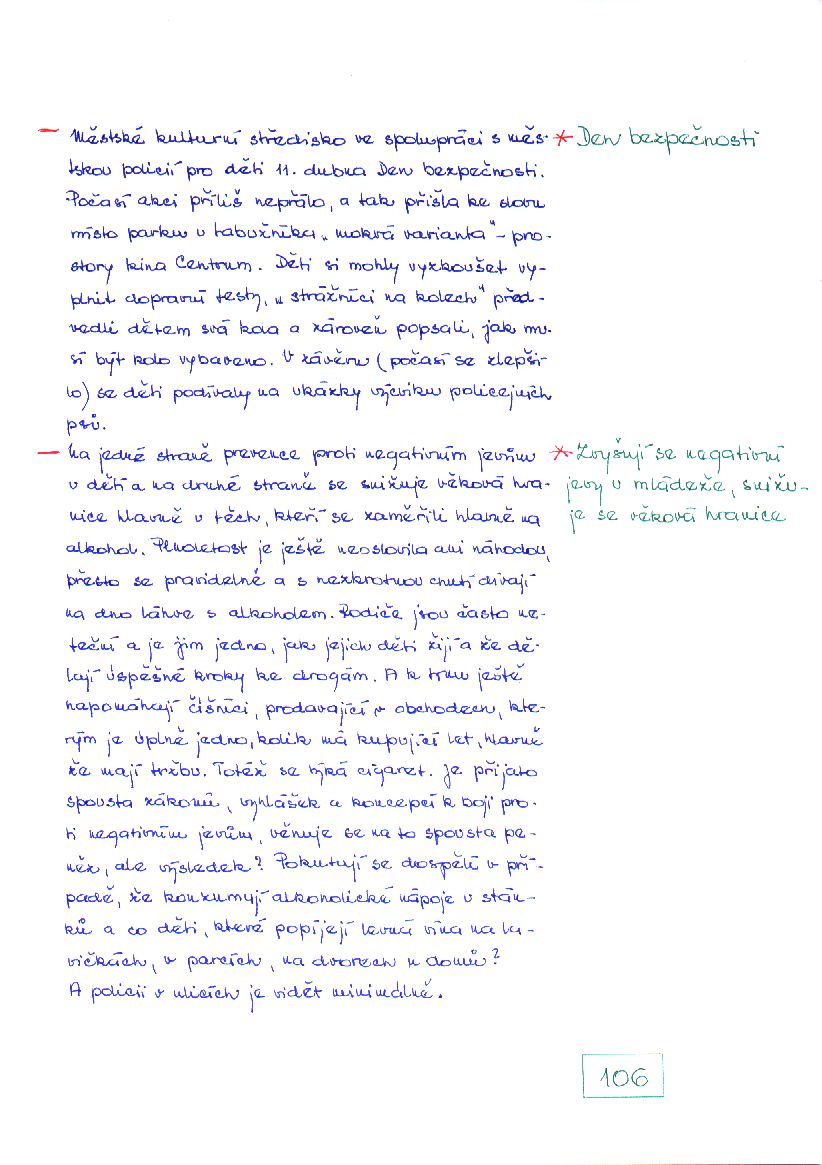 – Městské kulturní středisko ve spolupráci s měs- * Den bezpečnosti
tskou policií pro děti 11. dubna Den bezpečnosti.
Počasí akci příliš nepřálo, a tak přišla ke slovu
místo parku u tabužníka „mokrá varianta“ – pro-
story kina Centrum. Děti si mohly vyzkoušet vy-
plnit dopravní testy, „strážníci na kolech“ před-
vedli dětem svá kola a zároveň popsali, jak mu-
sí být kolo vybaveno. V závěru (počasí se zlepši-
lo) se děti podívaly na ukázky výcviku policejních
psů.
– Na jedné straně prevence proti negativním jevům * Zvyšují se negativní
u dětí a na druhé straně se snižuje věková hra- jevy u mládeže, snižu-
nice hlavně u těch, kteří se zaměřili hlavně na je se věková hranice
alkohol. Plnoletost je ještě neoslovila ani náhodou,
přesto se pravidelně a s nezkrotnou chutí dívají
na dno láhve s alkoholem. Rodiče jsou často ne-
teční a je jim jedno, jak jejich děti žijí a že dě-
lají úspěšné kroky ke drogám. A k tomu ještě
napomáhají číšníci, prodavající v obchodech, kte-
rým je úplně jedno, kolik má kupující let, hlavně
že mají tržbu. Totéž se týká cigaret. Je přijato
spousta zákonů, vyhlášek a koncepcí k boji pro-
ti negativním jevům, věnuje se na to spousta pe-
něz, ale výsledek? Pokutují se dospělí v pří-
padě, že konzumují alkoholické nápoje u stán-
ků a co děti, které popíjejí levná vína na la-
vičkách, v parcích, na dvorech u domů?
A policii v ulicích je vidět minimálně.
106